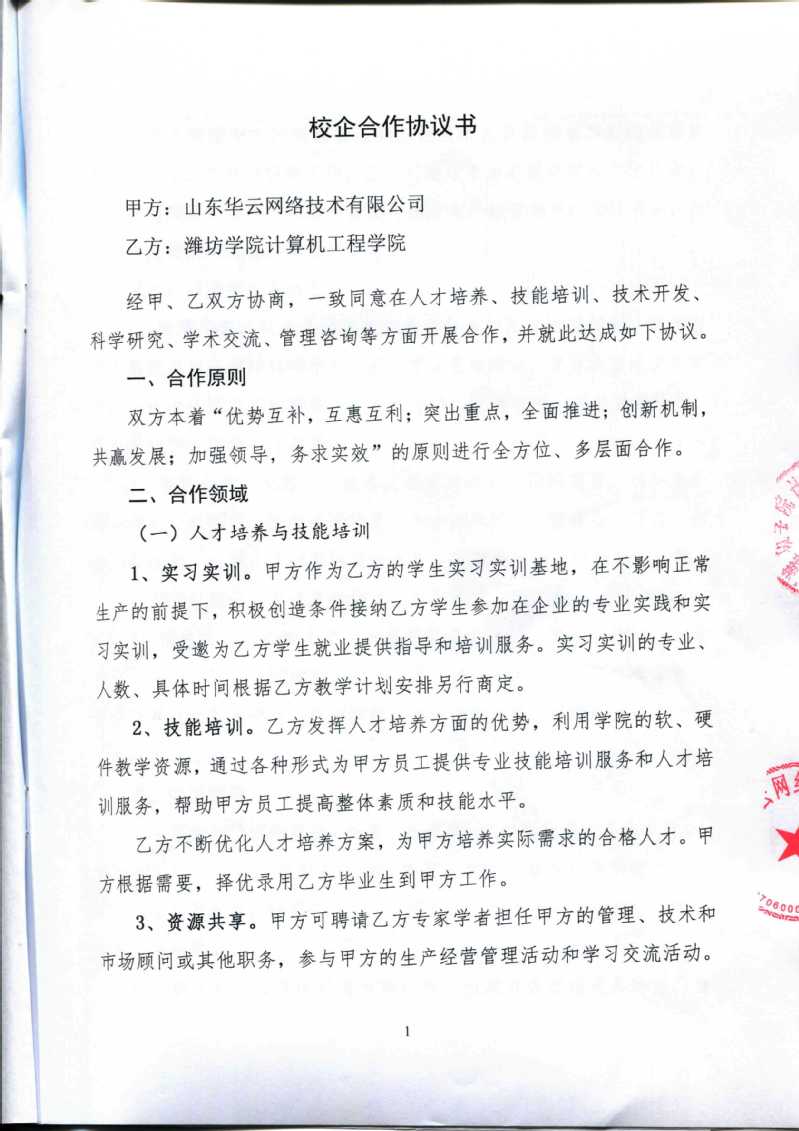 校企合作协议书
甲方：山东华云网络技术有限公司
乙方：潍坊学院计算机工程学院
经甲、乙双方协商，一致同意在人才培养、技能培训、技术开发、
科学研究、学术交流、管理咨询等方面开展合作，并就此达成如下协议。
一、合作原则
双方本着“优势互补，互惠互利；突出重点，全面推进；创新机制，
共赢发展；加强领导，务求实效”的原则进行全方位、多层面合作。
二、合作领域
（一）人才培养与技能培训
1、实习实训。甲方作为乙方的学生实习实训基地，在不影响正常
生产的前提下，积极创造条件接纳乙方学生参加在企业的专业实践和实
习实训，受邀为乙方学生就业提供指导和培训服务。实习实训的专业、
人数、具体时间根据乙方教学计划安排另行商定。
2、技能培训。乙方发挥人才培养方面的优势，利用学院的软、硬
件教学资源，通过各种形式为甲方员工提供专业技能培训服务和人才培
训服务，帮助甲方员工提高整体素质和技能水平。
乙方不断优化人才培养方案，为甲方培养实际需求的合格人才。甲
方根据需要，择优录用乙方毕业生到甲方工作。
3、资源共享。甲方可聘请乙方专家学者担任甲方的管理、技术和
市场顾问或其他职务，参与甲方的生产经营管理活动和学习交流活动。
网络
706000
1